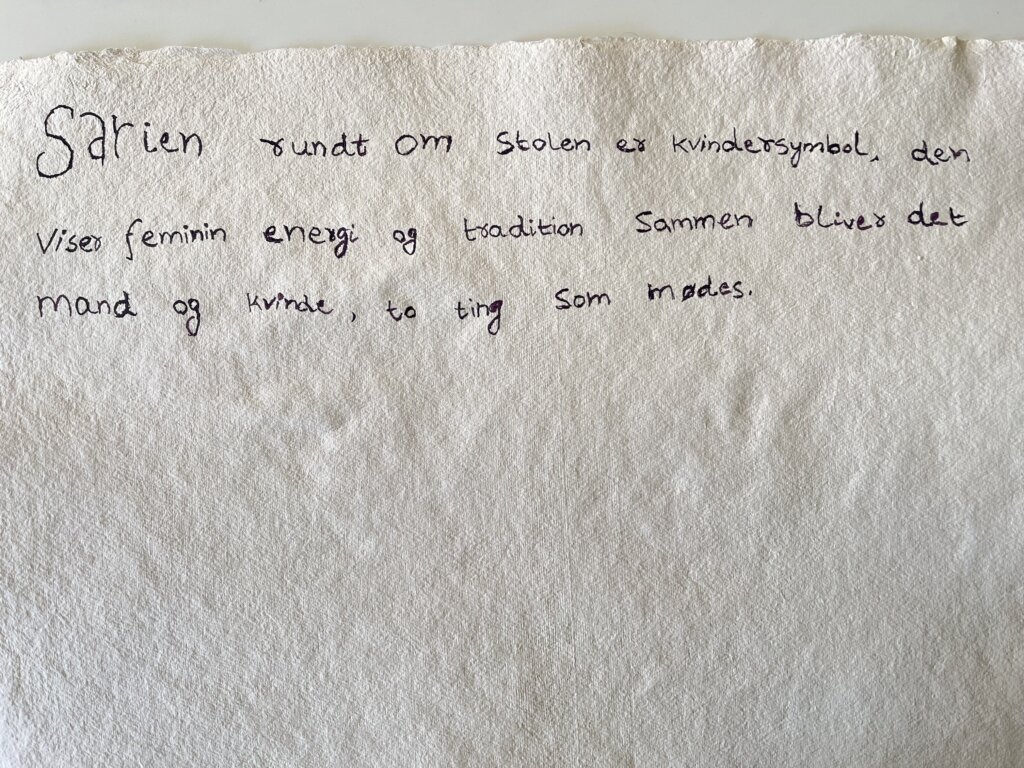 Sarien rundt om stolen er kvindersymbol, den
viser feminin energi og tradition sammen bliver det
mand og kvinde, to ting som mødes.